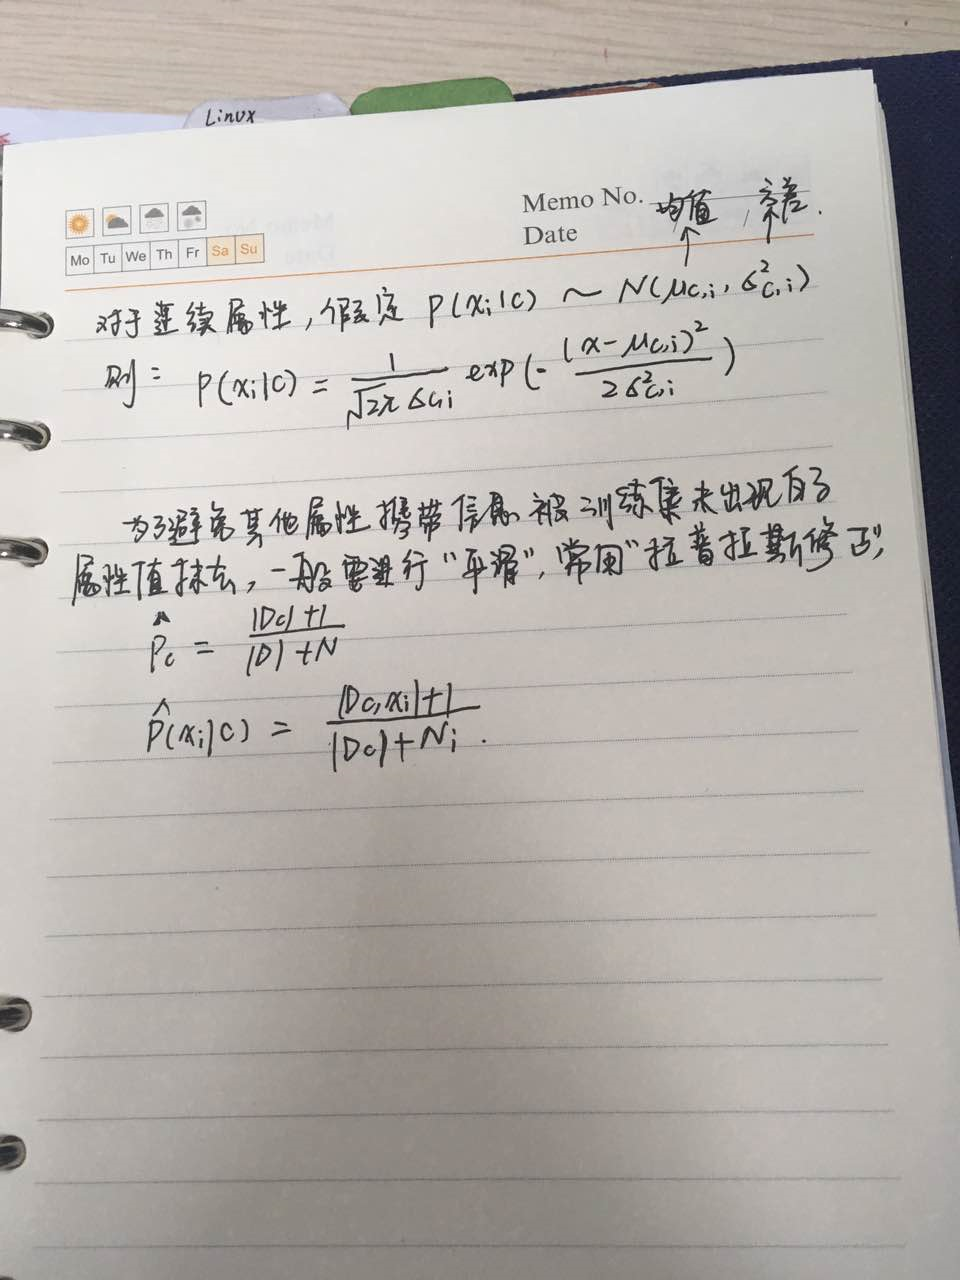 Linux
Memo No. 均值, 方差.
Date
Mo Tu We Th Fr Sa Su
对于连续属性,假定 p(xi|c) ~ N(μc,i, σ²c,i)
则: p(xi|c) = 1/(√2π σc,i) exp(-(x-μc,i)²/2σ²c,i)
为了避免其他属性携带信息被训练集未出现的
属性值抹去,一般要进行"平滑",常用"拉普拉斯修正"
P̂c = |Dc|+1 / |D|+N
P̂(xi|c) = |Dc,xi|+1 / |Dc|+Ni.